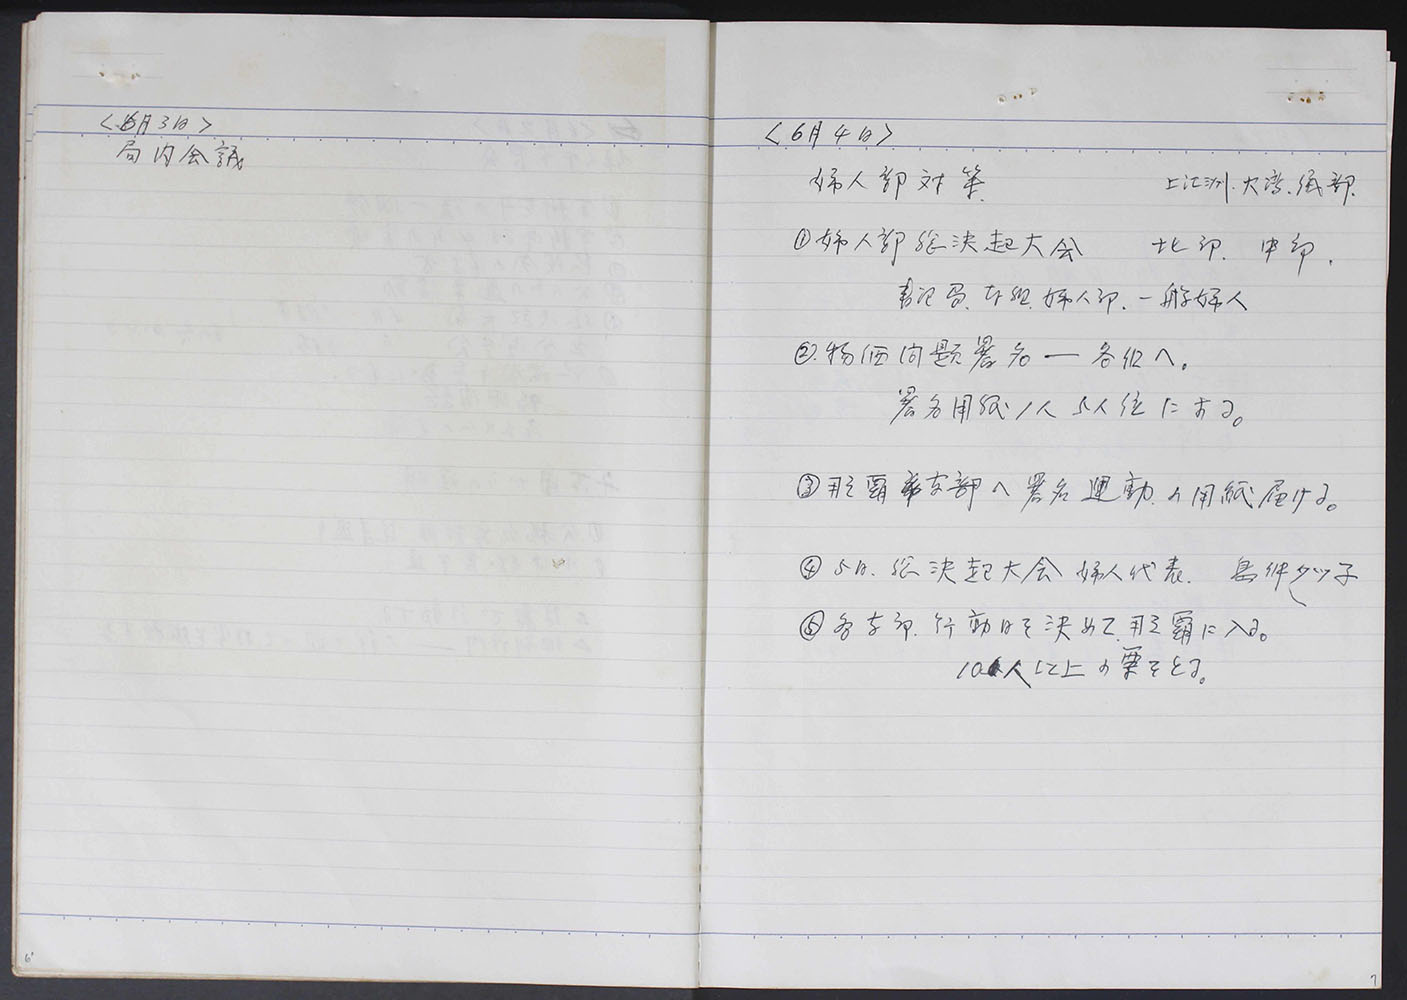 <6月3日>
局内会議
6
<6月4日>
婦人部対策 上江洲.大湾.組部.
①婦人部総決起大会 北部. 中部.
書記局. 婦人部. 一般婦人
②.物価問題署名 ― 各位へ。
署名用紙1人5人位にする。
③那覇支部へ署名運動の用紙届ける。
④5日.総決起大会 婦人代表. 島仲 ツ子
⑤各支部.行動日を決めて.那覇に入る。
10人以上の票をとる。
7